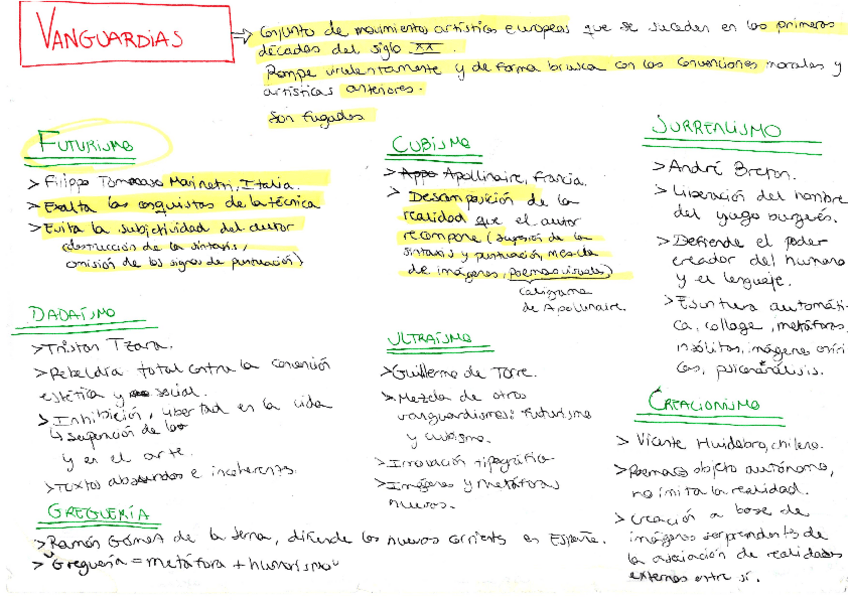 VANGUARDIAS
⇒ Conjunto de movimientos artísticos europeos que se suceden en las primeras
décadas del siglo XX.
Rompe virulentamente y de forma brusca con las convenciones morales y
artísticas anteriores.
Son fugados
FUTURISMO
> Filippo Tommaso Marinetti, Italia.
> Exalta las conquistas de la técnica
> Evita la subjetividad del autor
(destrucción de la sintaxis,
omisión de los signos de puntuación)
DADAÍSMO
> Tristan Tzara.
> Rebeldía total contra la convención
estética y social.
> Inhibición, libertad en la vida
y en el arte.
> Textos absurdos e incoherents.
GREGUERÍA
> Ramón Gómez de la Serna, difunde las nuevas corrients en España.
> "Greguería = metáfora + humorismo"
CUBISMO
> Appo Apollinaire, Francia.
> Descomposición de la
realidad que el autor
recompone (supresión de la
sintaxis y puntuación, mezcla
de imágenes, poemas visuales)
Caligrama
de Apollinaire.
ULTRAÍSMO
> Guillermo de Torre.
> Mezcla de otros
vanguardismos: futurismo
y cubismo.
> Innovación tipográfica.
> Imágenes y metáforas
nuevas.
SURREALISMO
> André Breton.
> Liberación del hombre
del yugo burgués.
> Defiende el poder
creador del humano
y el lenguaje.
> Escritura automáti-
ca, collage, metáforas
insólitas, imágenes oníri
cas, psicoanálisis.
CREACIONISMO
> Vicente Huidobro, chileno.
> Poema objeto autónomo,
no imita la realidad.
> Creación a base de
imágenes sorprendents de
la asociación de realidades
externas entre sí.